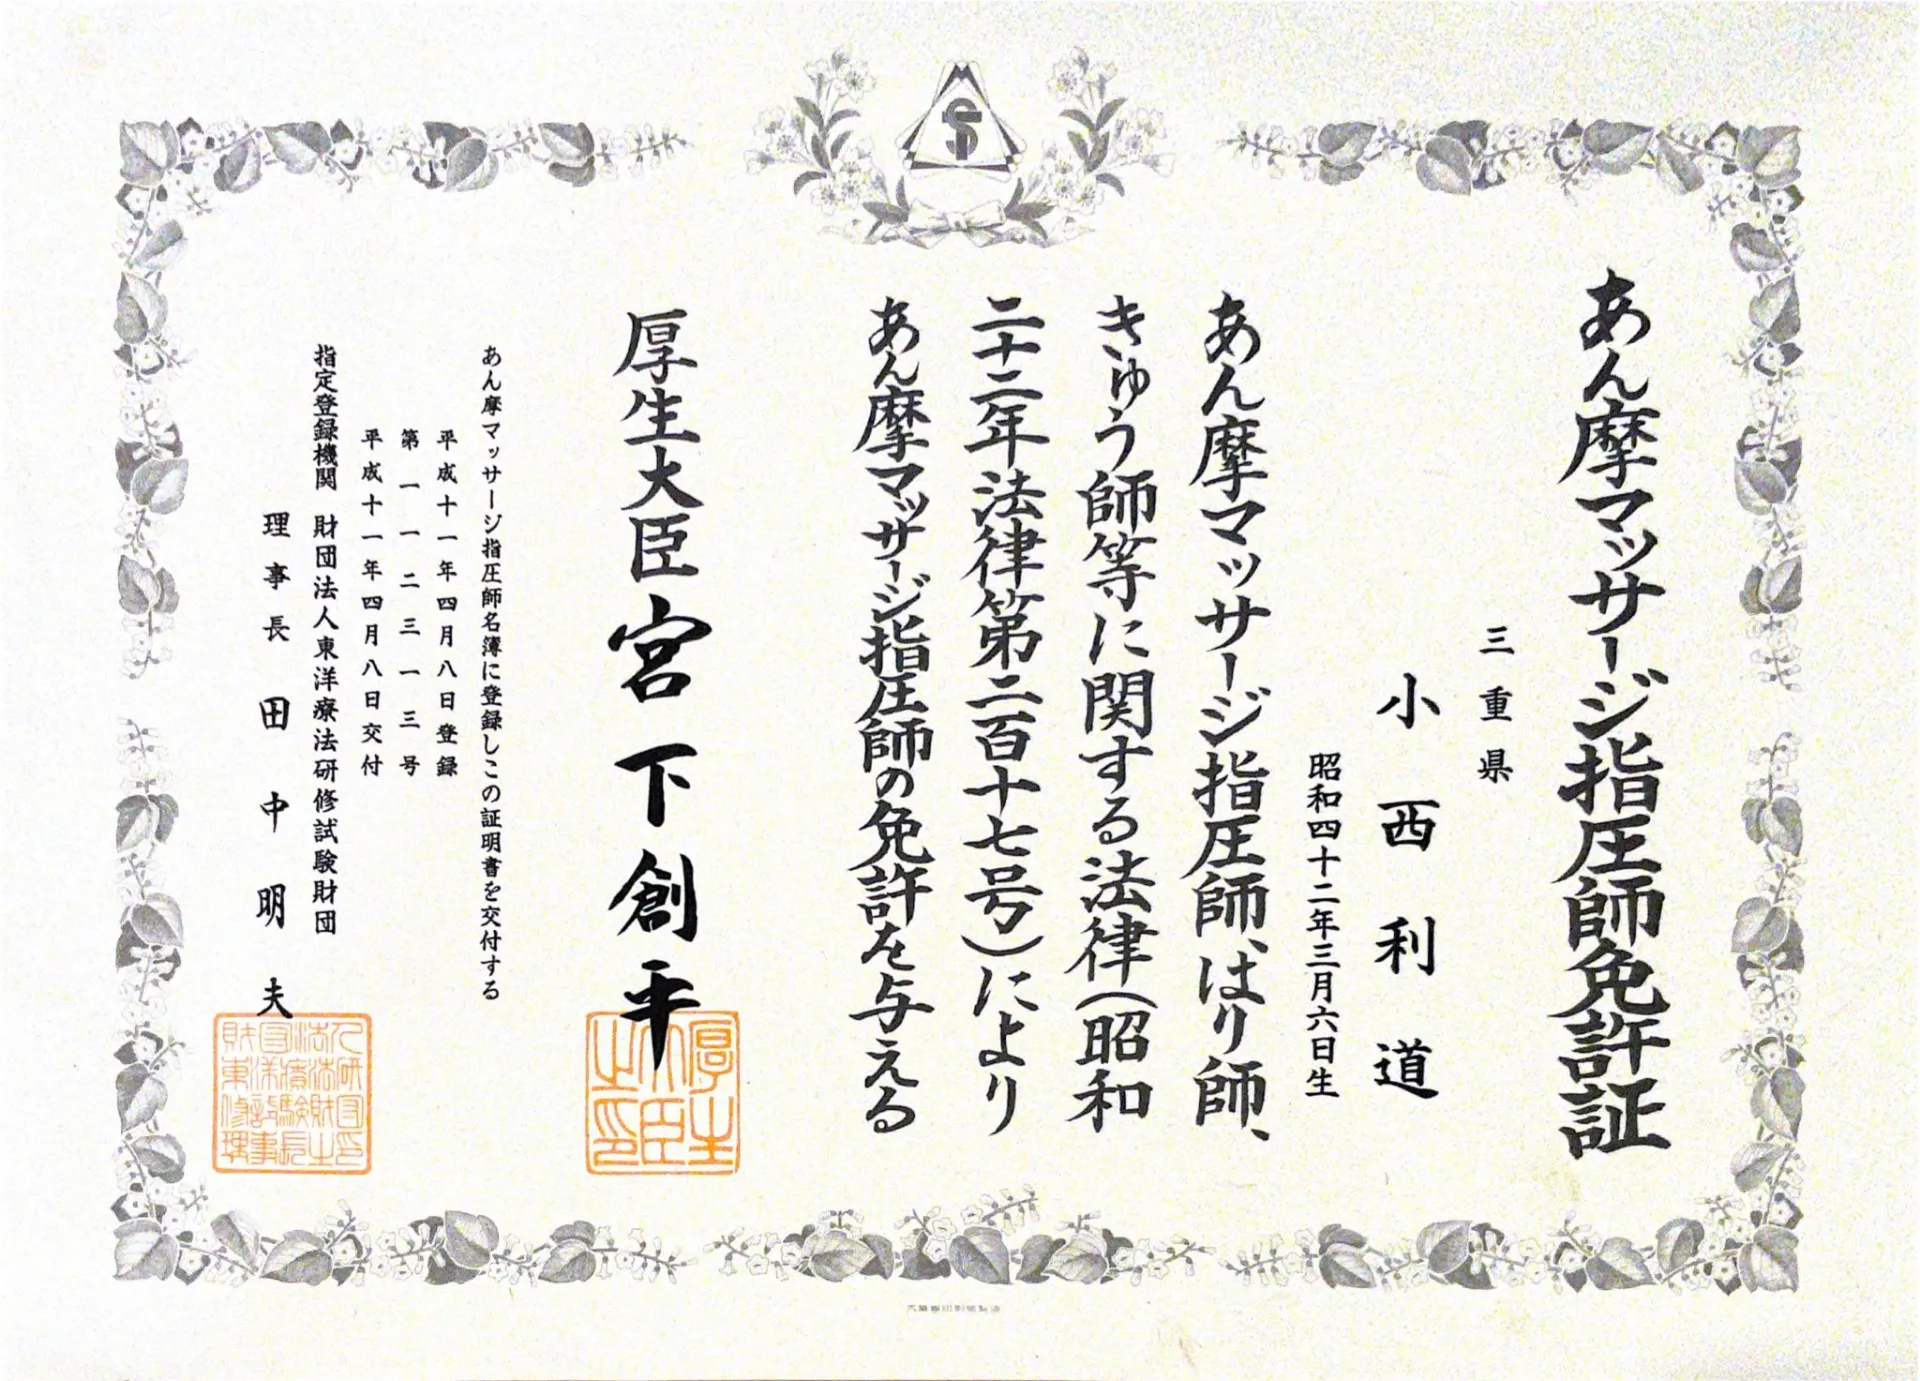 あん摩マッサージ指圧師免許証
三重県
小西利道
昭和四十二年三月六日生
あん摩マッサージ指圧師、はり師、
きゅう師等に関する法律(昭和
二十二年法律第二百十七号)により
あん摩マッサージ指圧師の免許を与える
厚生大臣 宮下創平
厚生大臣之印
あん摩マッサージ指圧師名簿に登録しこの証明書を交付する
平成十一年四月八日登録
第一一二三一三号
平成十一年四月八日交付
指定登録機関 財団法人東洋療法研修試験財団
理事長 田中明夫
大蔵省印刷局製造